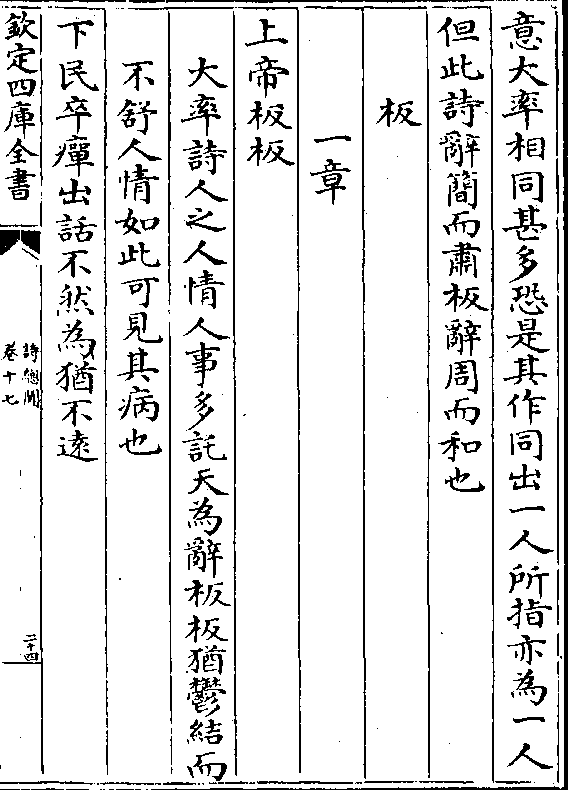 意大率相同甚多恐是其作同出一人所指亦為一人
但此詩辭簡而肅板辭周而和也
板
一章
上帝板板
大率詩人之人情人事多託天為辭板板猶鬱結而
不舒人情如此可見其病也
下民卒癉出話不然為猶不遠
欽定四庫全書
詩總聞
卷十七
二十四